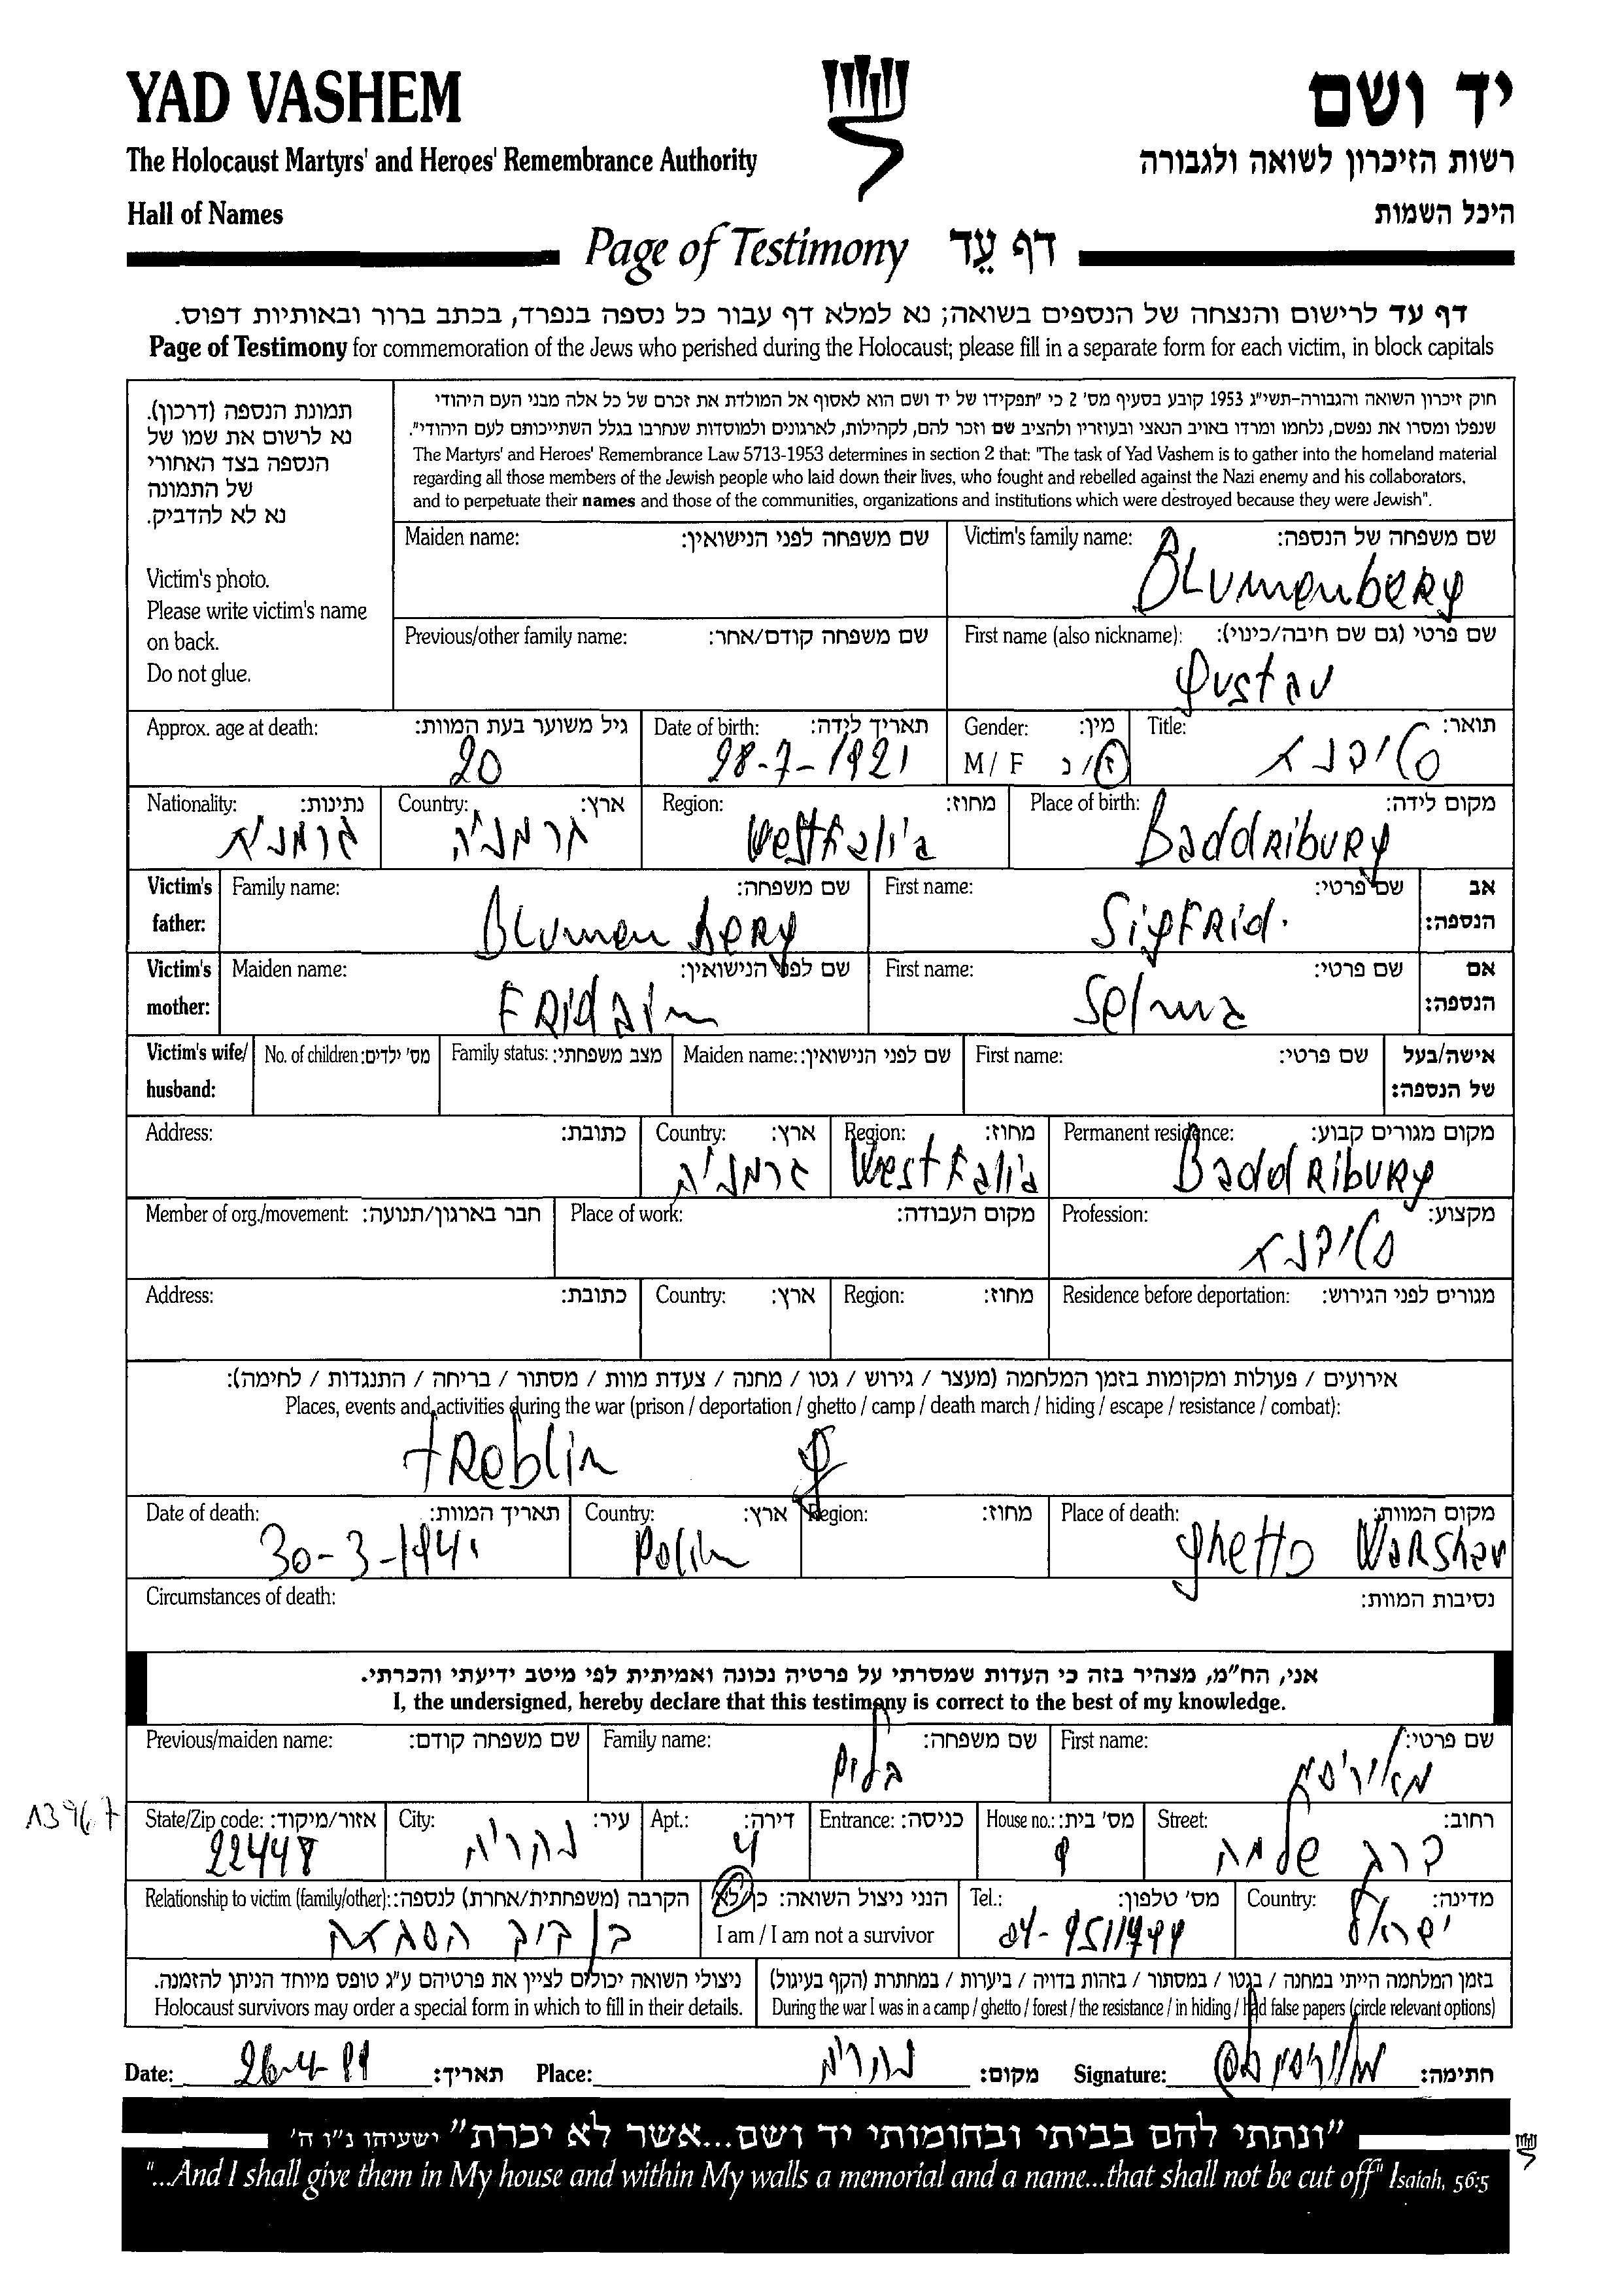 YAD VASHEM
יד ושם
The Holocaust Martyrs' and Heroes' Remembrance Authority
רשות הזיכרון לשואה ולגבורה
Hall of Names
היכל השמות
Page of Testimony דף עֵד
דף עד לרישום והנצחה של הנספים בשואה; נא למלא דף עבור כל נספה בנפרד, בכתב ברור ובאותיות דפוס.
Page of Testimony for commemoration of the Jews who perished during the Holocaust; please fill in a separate form for each victim, in block capitals
תמונת הנספה (דרכון).
נא לרשום את שמו של
הנספה בצד האחורי
של התמונה
נא לא להדביק.
Victim's photo.
Please write victim's name
on back.
Do not glue.
חוק זיכרון השואה והגבורה-תשי״ג 1953 קובע בסעיף מס' 2 כי "תפקידו של יד ושם הוא לאסוף אל המולדת את זכרם של כל אלה מבני העם היהודי
שנפלו ומסרו את נפשם, נלחמו ומרדו באויב הנאצי ובעוזריו ולהציב שם וזכר להם, לקהילות, לארגונים ולמוסדות שנחרבו בגלל השתייכותם לעם היהודי".
The Martyrs' and Heroes' Remembrance Law 5713-1953 determines in section 2 that: "The task of Yad Vashem is to gather into the homeland material
regarding all those members of the Jewish people who laid down their lives, who fought and rebelled against the Nazi enemy and his collaborators,
and to perpetuate their names and those of the communities, organizations and institutions which were destroyed because they were Jewish".
Maiden name: שם משפחה לפני הנישואין:
Victim's family name: שם משפחה של הנספה:
Blumenberg
Previous/other family name: שם משפחה קודם/אחר:
First name (also nickname): שם פרטי (גם שם חיבה/כינוי):
Gustav
Approx. age at death: גיל משוער בעת המוות:
20
Date of birth: תאריך לידה:
28-7-1921
Gender: מין:
M / F ז/נ
Title: תואר:
Nationality: נתינות:
גרמנית
Country: ארץ:
גרמניה
Region: מחוז:
Westfalia
Place of birth: מקום לידה:
Baddribury
Victim's father:
Family name: שם משפחה:
Blumenberg
First name: שם פרטי:
Sigfrid.
אב הנספה:
Victim's mother:
Maiden name: שם לפני הנישואין:
Fridaim
First name: שם פרטי:
Selma
אם הנספה:
Victim's wife/ husband:
No. of children: מס' ילדים:
Family status: מצב משפחתי:
Maiden name: שם לפני הנישואין:
First name: שם פרטי:
אישה/בעל של הנספה:
Address: כתובת:
Country: ארץ:
גרמניה
Region: מחוז:
Westfalia
Permanent residence: מקום מגורים קבוע:
Baddribury
Member of org./movement: חבר בארגון/תנועה:
Place of work: מקום העבודה:
Profession: מקצוע:
Address: כתובת:
Country: ארץ:
Region: מחוז:
Residence before deportation: מגורים לפני הגירוש:
אירועים / פעולות ומקומות בזמן המלחמה (מעצר / גירוש / גטו / מחנה / צעדת מוות / מסתור / בריחה / התנגדות / לחימה):
Places, events and activities during the war (prison / deportation / ghetto / camp / death march / hiding / escape / resistance / combat):
treblin
Date of death: תאריך המוות:
30-3-1941
Country: ארץ:
Polin
Region: מחוז:
Place of death: מקום המוות:
ghetto Warshav
Circumstances of death: נסיבות המוות:
אני, הח״מ, מצהיר בזה כי העדות שמסרתי על פרטיה נכונה ואמיתית לפי מיטב ידיעתי והכרתי.
I, the undersigned, hereby declare that this testimony is correct to the best of my knowledge.
Previous/maiden name: שם משפחה קודם:
Family name: שם משפחה:
בלום
First name: שם פרטי:
13967
State/Zip code: אזור/מיקוד:
22448
City: עיר:
נהריה
Apt.: דירה:
4
Entrance: כניסה:
House no.: מס' בית:
9
Street: רחוב:
שלמה
Relationship to victim (family/other): הקרבה (משפחתית/אחרת) לנספה:
הנני ניצול השואה: כן/לא
I am / I am not a survivor
Tel.: מס' טלפון:
04-9511944
Country: מדינה:
ישראל
ניצולי השואה יכולים לציין את פרטיהם ע״ג טופס מיוחד הניתן להזמנה.
Holocaust survivors may order a special form in which to fill in their details.
בזמן המלחמה הייתי במחנה / בגטו / במסתור / בזהות בדויה / ביערות / במחתרת (הקף בעיגול)
During the war I was in a camp / ghetto / forest / the resistance / in hiding / had false papers (circle relevant options)
Date: 26-4-99 תאריך: Place: נהריה מקום: Signature: חתימה:
"ונתתי להם בביתי ובחומותי יד ושם...אשר לא יכרת" ישעיהו נ״ו ה'
"...And I shall give them in My house and within My walls a memorial and a name...that shall not be cut off" Isaiah, 56:5